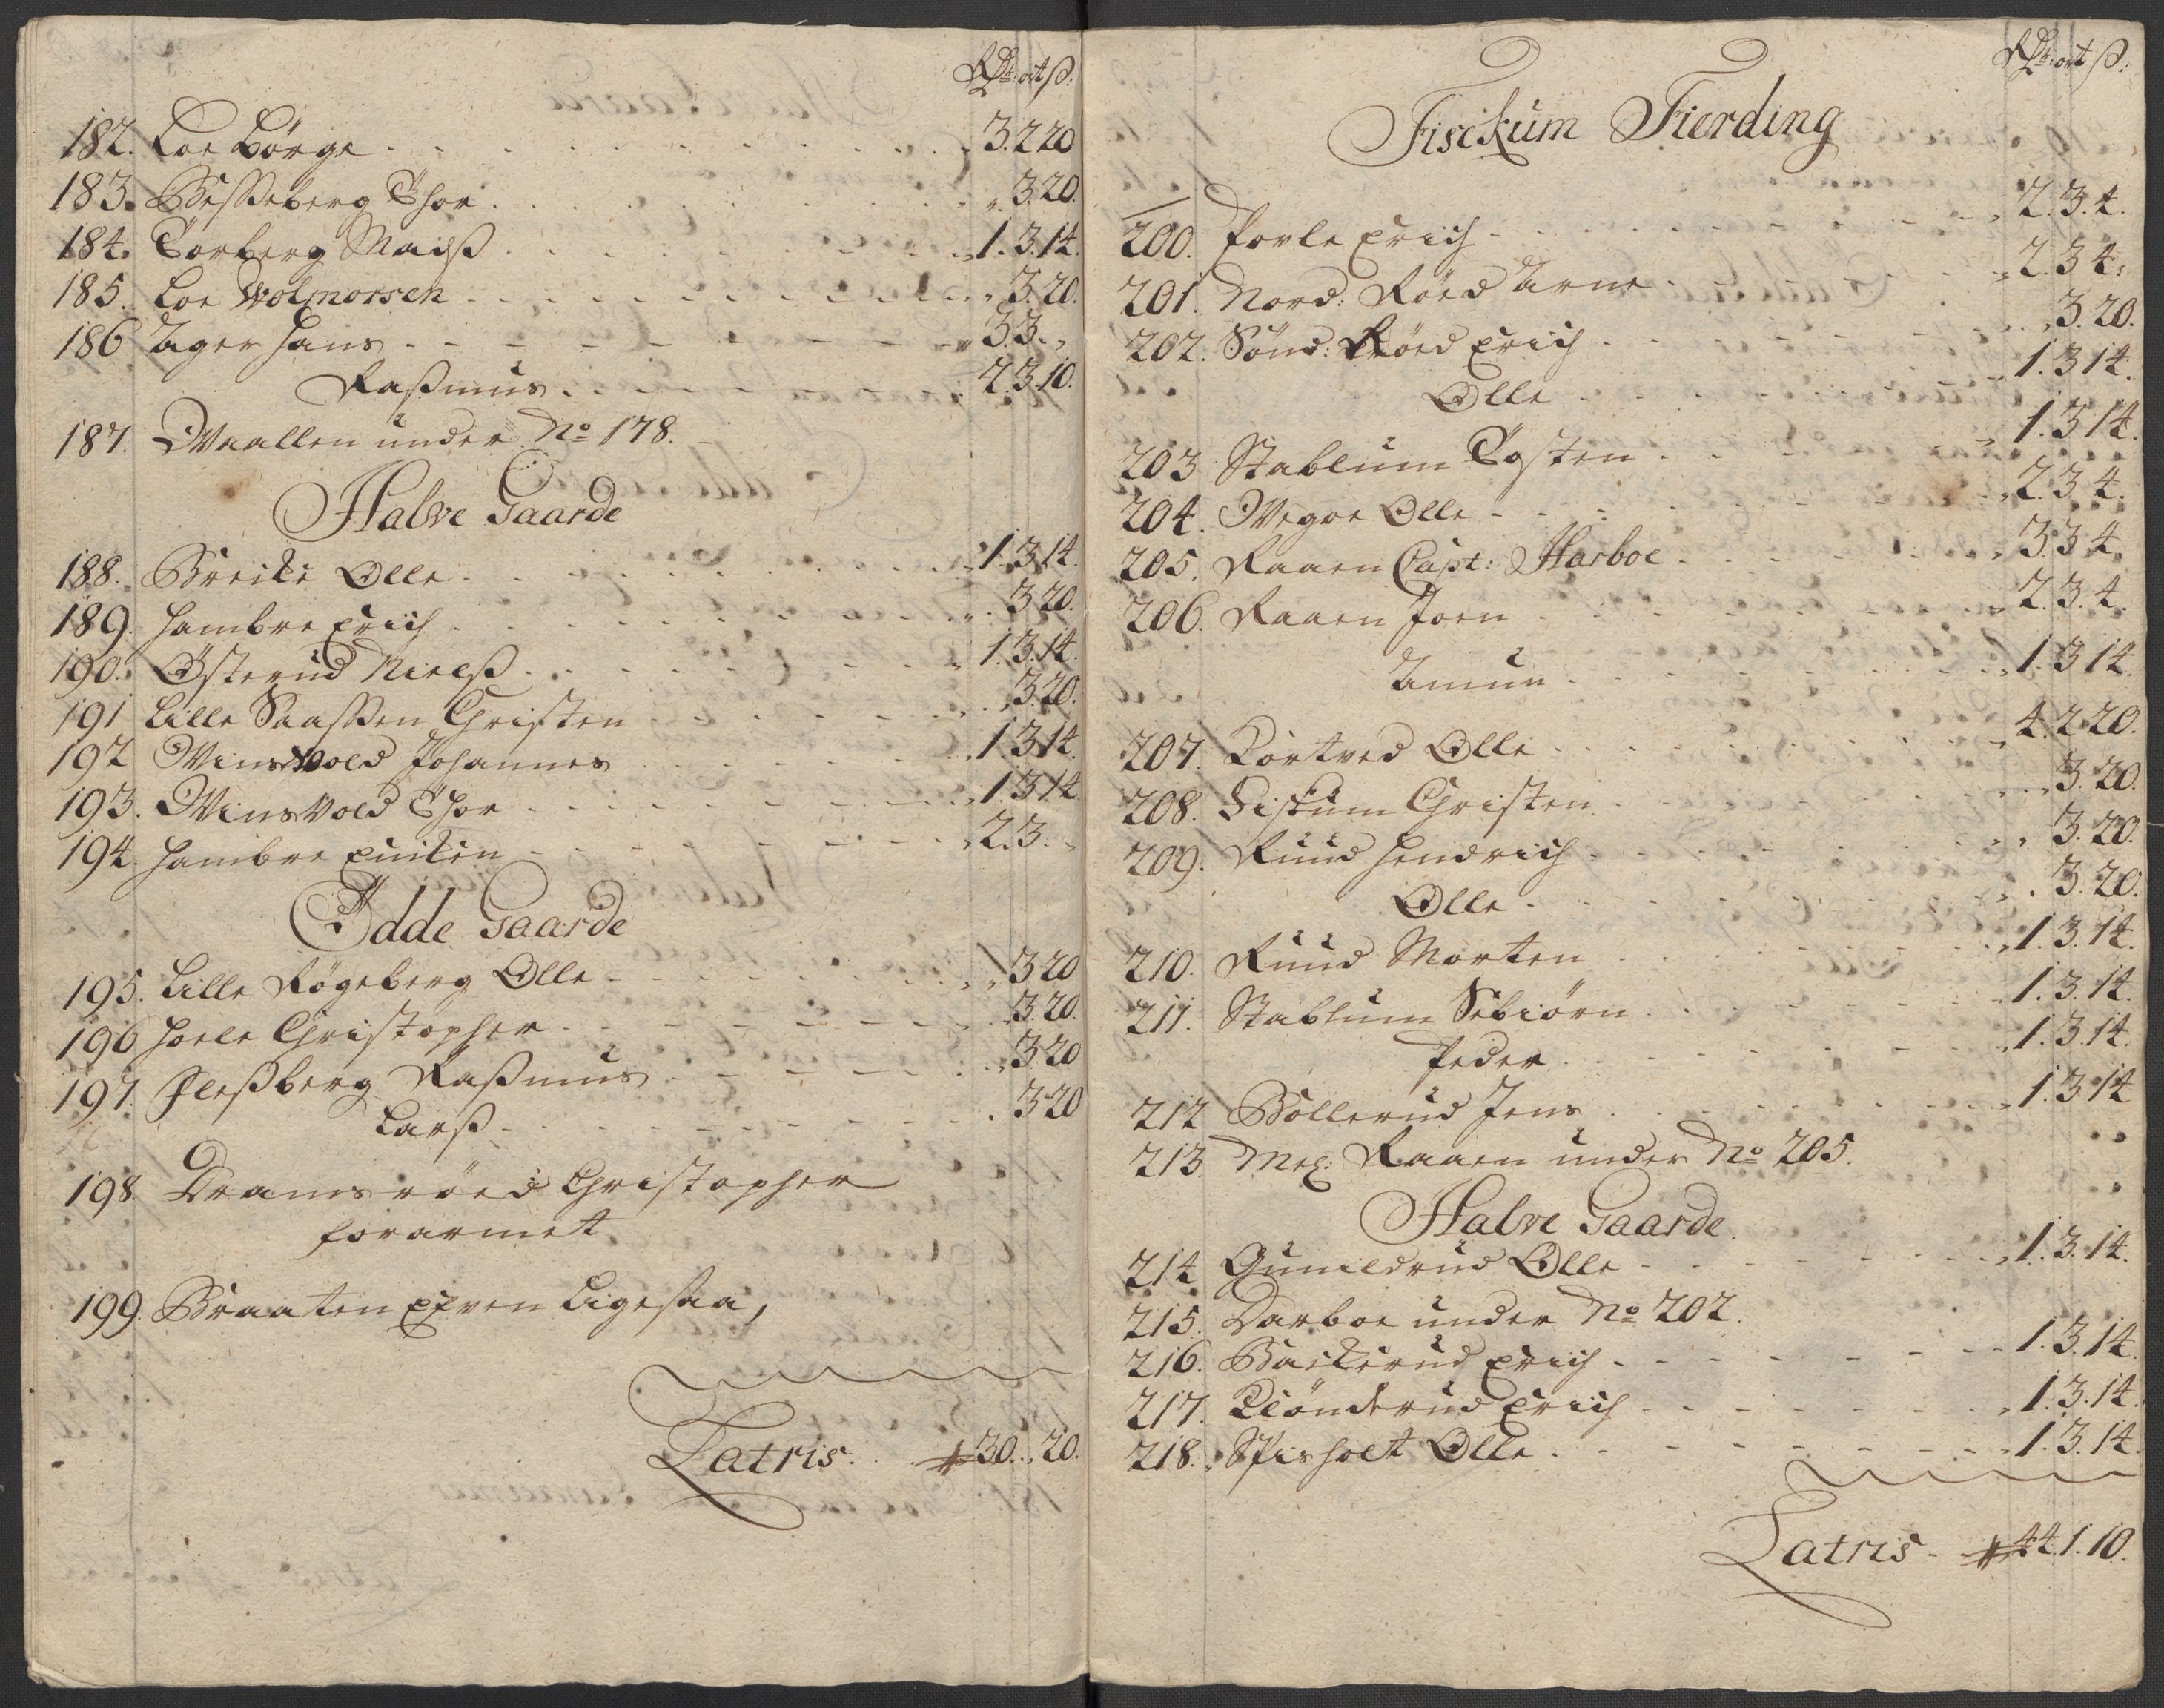 Rdr: ort ß:
182. Loe Börge . . . 3. 2 20
183. Besseberg Thor . . . „ 3. 20.
184. Torberg Madß . . . 1. 3. 14.
185. Loe Wolmorsen . . . „ 3. 20.
186 Ager Hans . . . 3 3. „
Raßmus . . . 2 3 10.
187. Waallen under No 178.
Halve Gaarde
188. Brecke Olle . . . 1. 3. 14.
189. Hambre Erich . . . „ 3 20.
190. Österud Nielß . . . 1. 3. 14.
191 Lille Saassen Christen . . . 3. 20.
192 Winswold Johannes . . . 1. 3 14.
193. Winsvold Thor . . . 1. 3 14
194. Hambre Encken . . . 2. 3. „
Ödde Gaarde
195. Lille Rögeberg Olle . . . „ 3 20
196 Hoele Christopher . . . 3. 20.
197. Fleßberg Raßmus . . . „ 3 20
Larß . . . 3 20
198. Dramsröed Christopher
forarmet
199. Braaten Even Ligesaa,
Latris . . # 30. „ 20.
Rdr: ort ß:
Fisckum Fierding
200. Povle Erich . . . 2. 3. 4.
201. Nord: Röed Arne . . . 2. 3 4.
202. Sönd: Röed Erich . . . „ 3. 20.
Olle . . . 1. 3 14.
203 Stablum Tosten . . . 1. 3 14.
204. Wegoe Olle . . . 2. 3 4.
205. Raaen Capt: Harboe . . . 3 3 4.
206. Raaen Joen . . . 2. 3. 4.
Amun . . . 1. 3 14.
207. Kortved Olle . . . 4. 2 20.
208. Fiskum Christen . . . 3. 20.
209. Ruud Hendrich . . . „ 3. 20.
Olle . . . 3. 20.
210. Ruud Morten . . . 1. 3. 14.
211. Stablum Sebiörn . . . 1. 3. 14.
Peder . . . 1. 3. 14.
212 Böllerud Jens . . . 1. 3 14
213 Mel: Raaen under No 205.
Halve Gaarde.
214 Gunildrud Olle . . . 1. 3. 14.
215. Darboe under No 202.
216. Backerud Erich . . . 1. 3. 14.
217. Klönderud Erich . . . 1. 3. 14.
218. Spisholt Olle . . . 1. 3. 14.
Latris . # 44 1. 10.